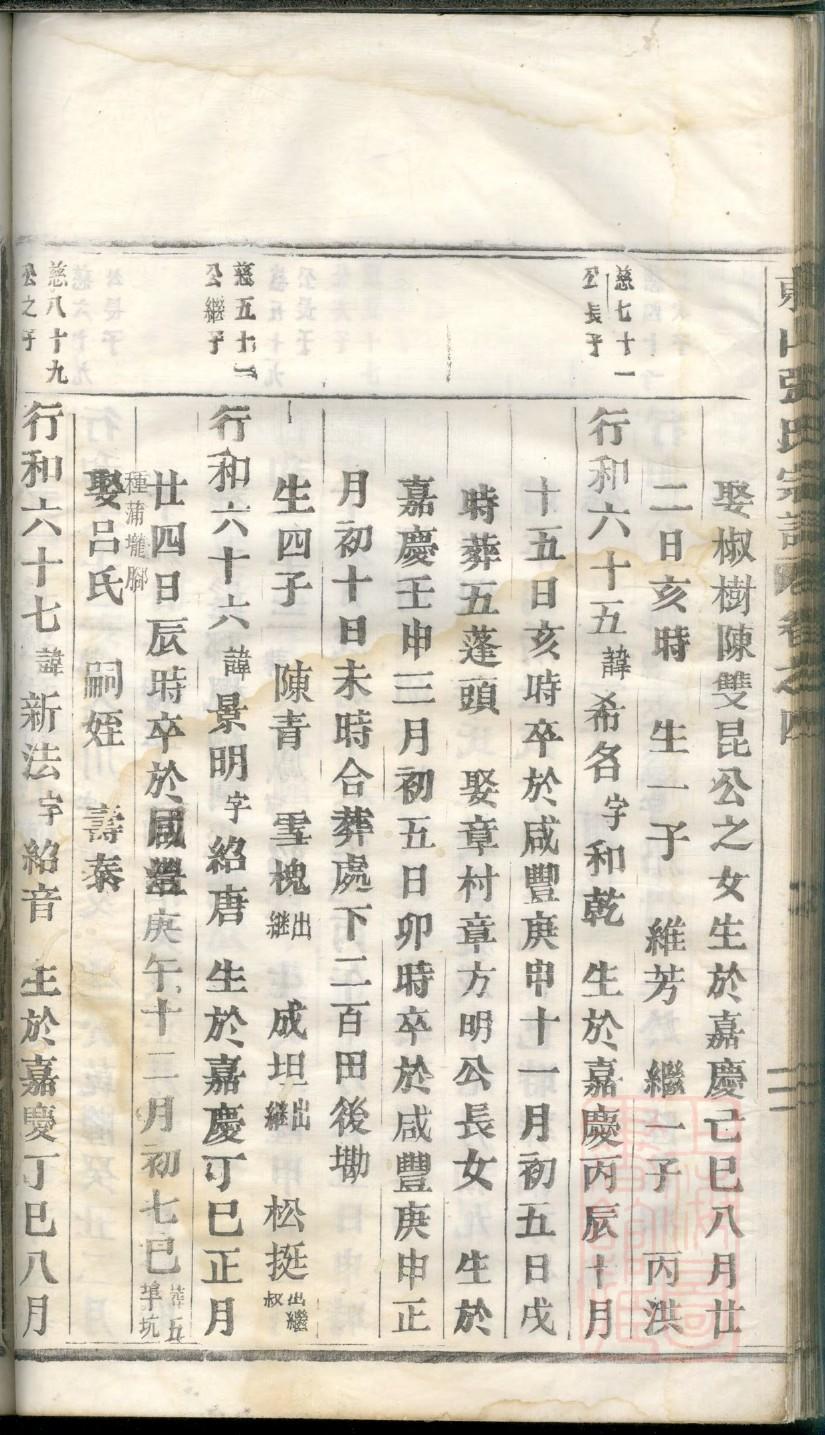 東山張氏宗譜卷之四
娶椒樹陳雙昆公之女生於嘉慶己巳八月廿
二日亥時 生一子 維芳 繼一子 丙洪
慈七十一公長子
行和六十五諱希名字和乾 生於嘉慶丙辰十月
十五日亥時卒於咸豐庚申十一月初五日戌
時葬五蓬頭 娶章村章方明公長女 生於
嘉慶壬申三月初五日卯時卒於咸豐庚申正
月初十日未時合葬處下二百田後塝
生四子 陳青 雪槐出繼 成坦出繼 松挺出繼叔
慈五十二公繼子
行和六十六諱景明字紹唐 生於嘉慶丁巳正月
廿四日辰時卒於咸豐庚午十二月初七巳葬五埠坑
種蒲壠腳
娶呂氏 嗣姪 壽泰
慈八十九公之子
行和六十七諱新法字紹音 生於嘉慶丁巳八月